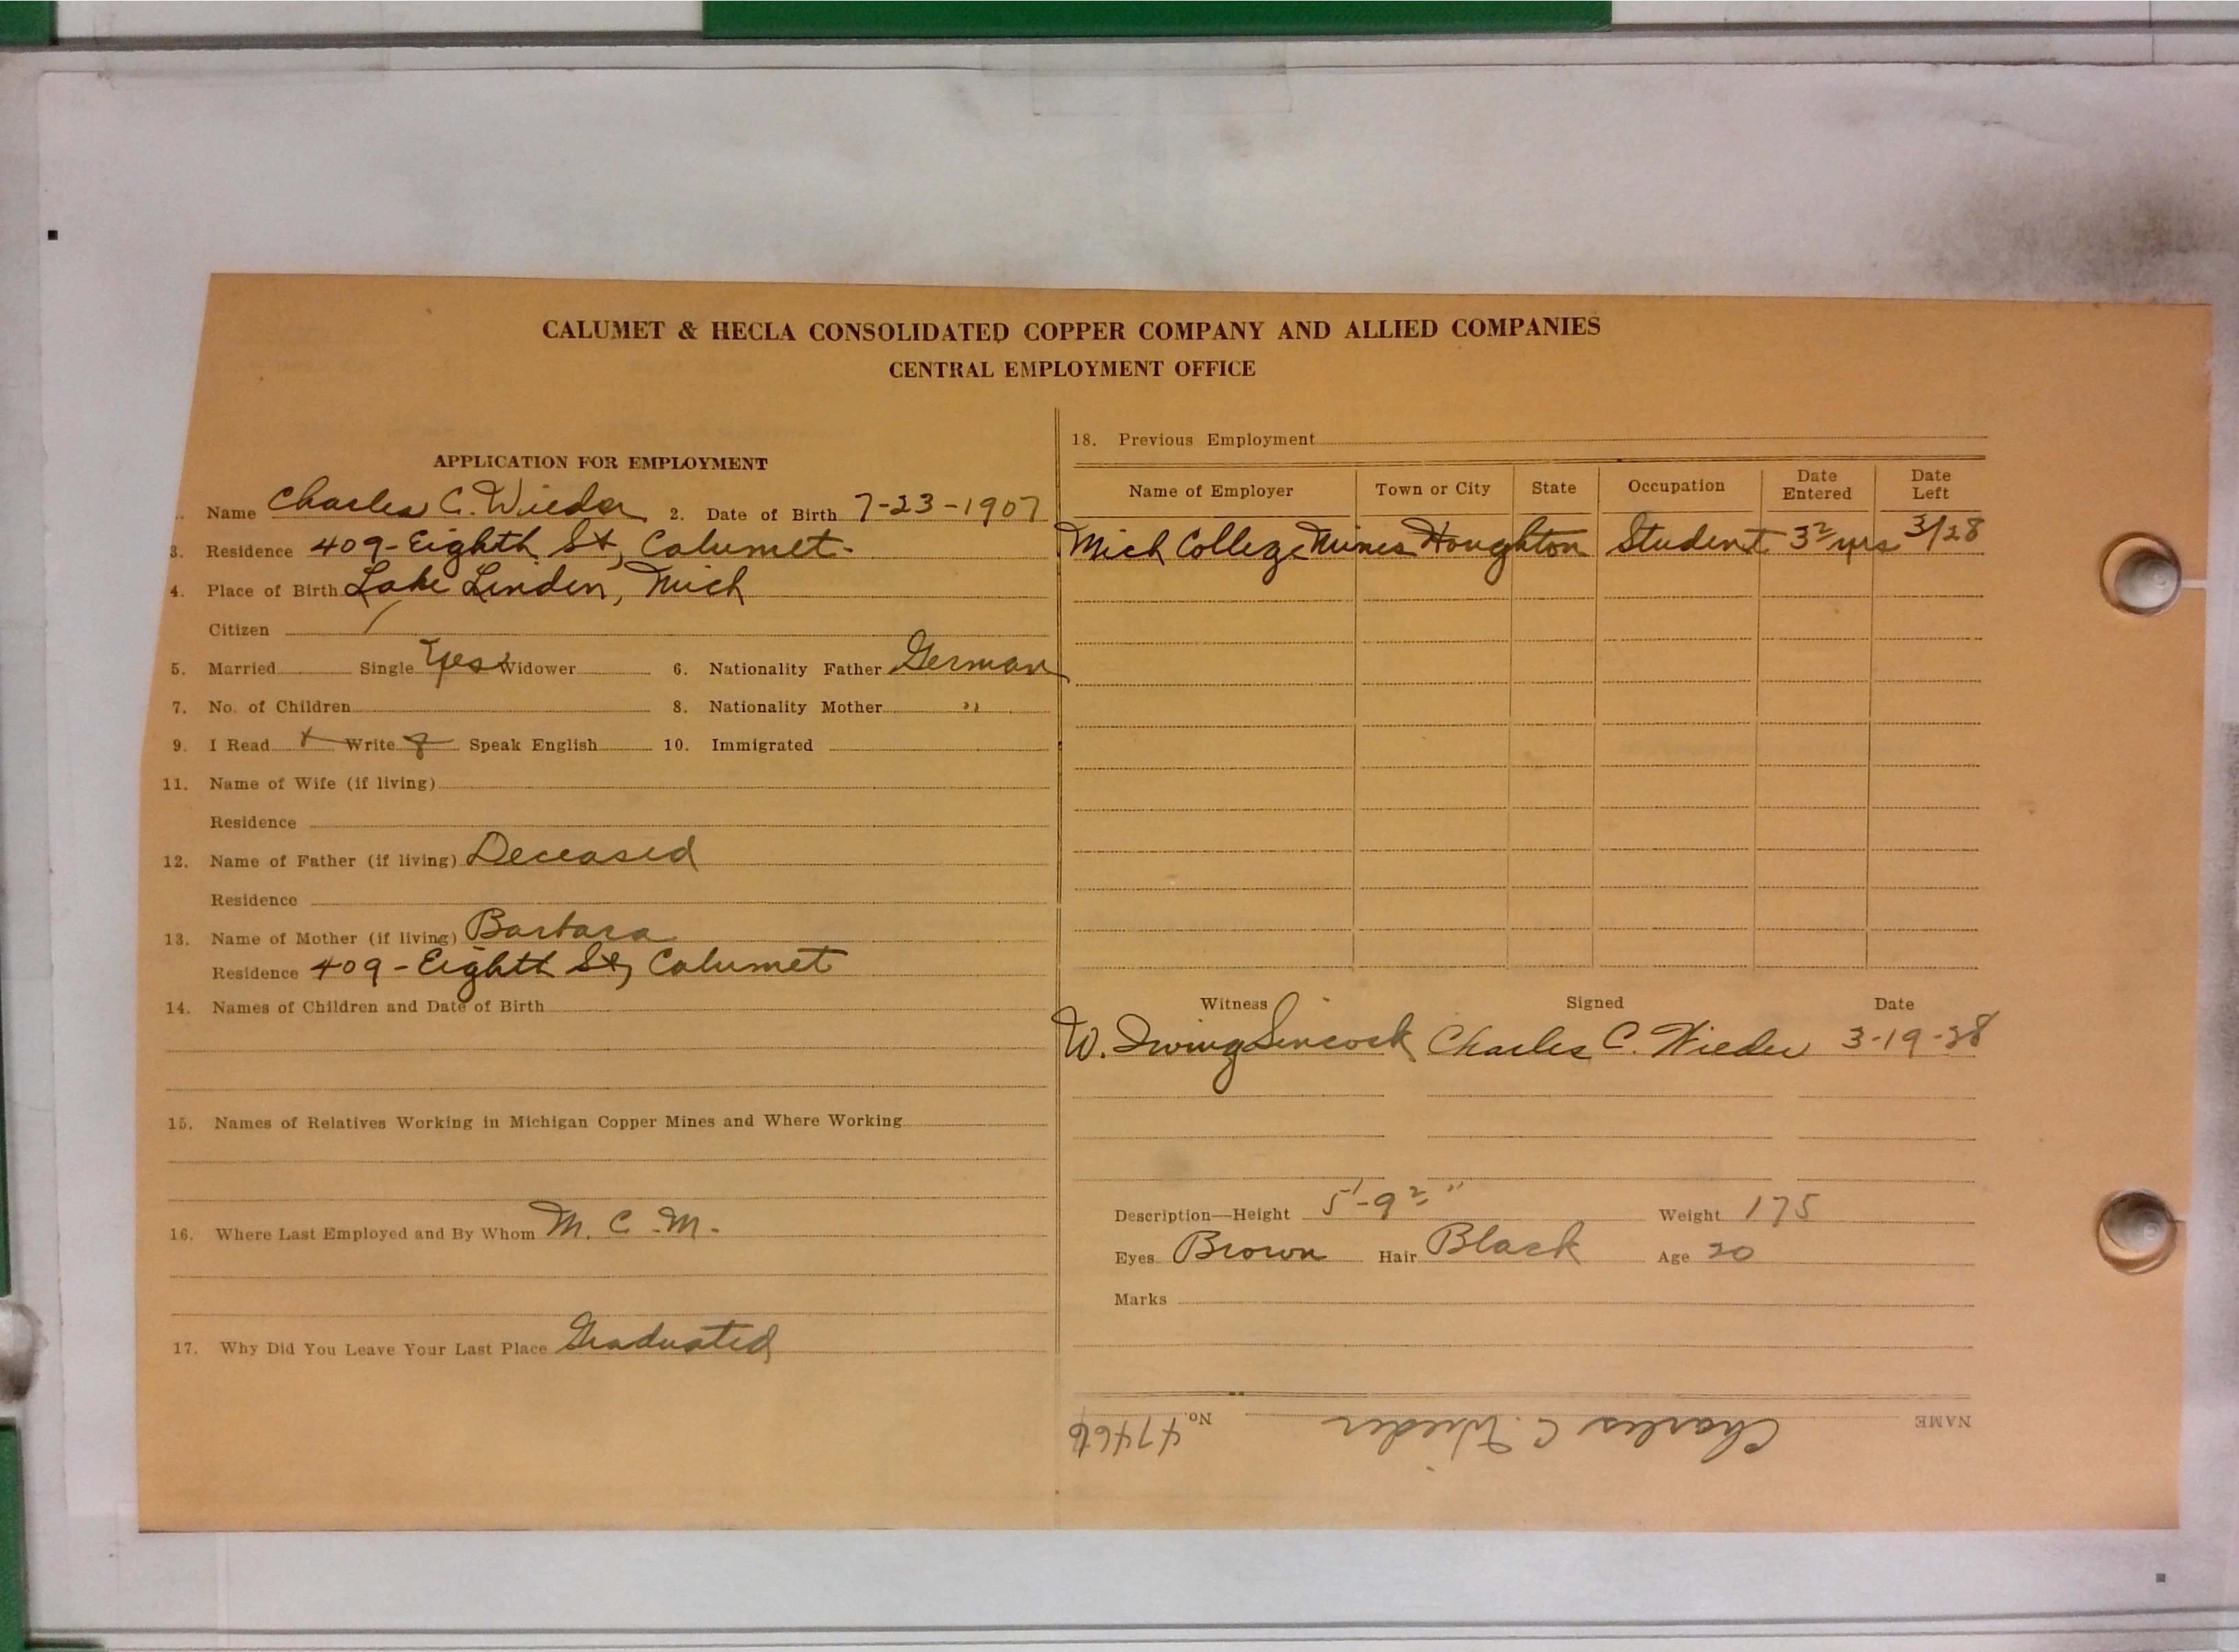 CALUMET & HECLA CONSOLIDATED COPPER COMPANY AND ALLIED COMPANIES
CENTRAL EMPLOYMENT OFFICE
APPLICATION FOR EMPLOYMENT
Name Charles C. Wieder 2. Date of Birth 7-23-1907
3. Residence 409-Eighth St, Calumet-
4. Place of Birth Lake Linden, Mich
Citizen
5. Married Single Yes Widower 6. Nationality Father German
7. No. of Children 8. Nationality Mother "
9. I Read Write Speak English 10. Immigrated
11. Name of Wife (if living)
Residence
12. Name of Father (if living) Deceased
Residence
13. Name of Mother (if living) Barbara
Residence 409-Eighth St, Calumet
14. Names of Children and Date of Birth
15. Names of Relatives Working in Michigan Copper Mines and Where Working
16. Where Last Employed and By Whom M. C. M.
17. Why Did You Leave Your Last Place Graduated
18. Previous Employment
Name of Employer Town or City State Occupation Date Entered Date Left
Mich College Mines Houghton Student 3² yrs 3/28
Witness Signed Date
W. Irving Charles C. Wieder 3-19-28
Description—Height 5'-9²" Weight 175
Eyes Brown Hair Black Age 20
Marks
NAME Charles C. Wieder No. 47466